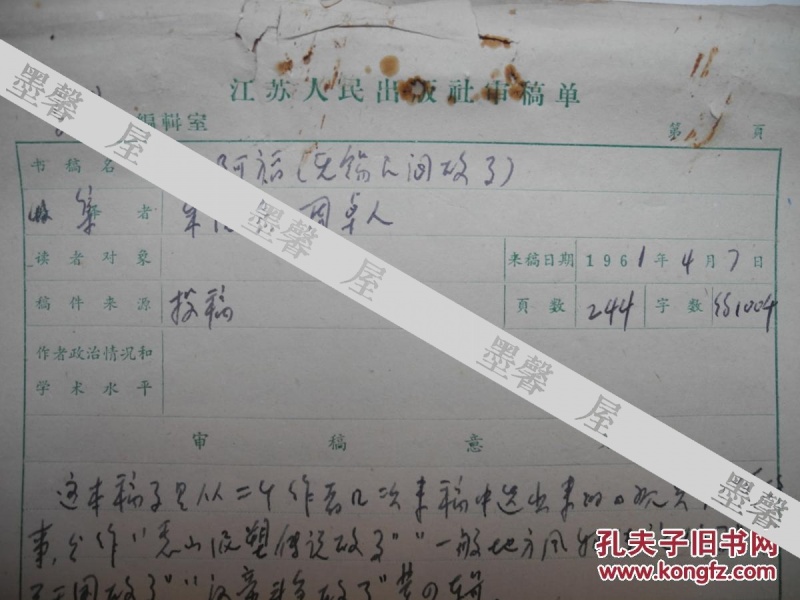 江苏人民出版社审稿单
编辑室 第 页
书稿名 阿福(无锡民间故了)
收集者 周卓人
读者对象 来稿日期 1961年4月7日
稿件来源 投稿 页数 244 字数
作者政治情况和
学术水平
审稿意
这本稿子是从二个作者几次来稿中选出来的。
事,分作"惠山泥塑传说故了""一般地方风
了""三国故了""故了"等四辑
墨馨 屋
墨馨 屋
墨馨 屋
墨馨 屋
孔夫子旧书网
www.kongfz.com